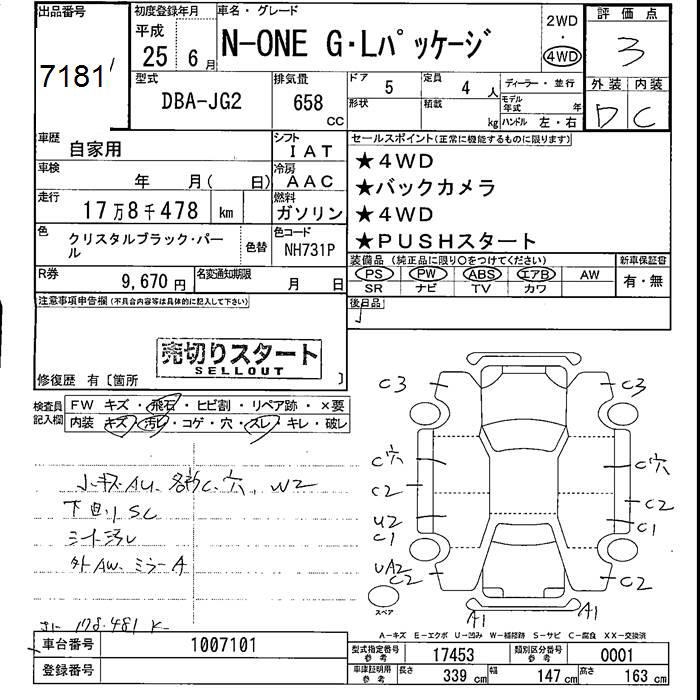 出品番号 初度登録年月 車名・グレード 2WD 評価点
7181 平成 N-ONE G・Lパッケージ ・ 3
25 6月 4WD
型式 排気量 ドア 5 定員 4人 ディーラー・並行 外装 内装
DBA-JG2 658 CC 形状 積載 kg モデル年式 年 ハンドル 左・右 D C
車歴 自家用 シフト IAT セールスポイント(正常に機能するものに限ります)
車検 年 月( 日) 冷房 AAC ★4WD
走行 17万8千478 km 燃料 ガソリン ★バックカメラ
色 クリスタルブラック・パール 色替 色コード NH731P ★4WD
★PUSHスタート
R券 9,670円 名変通知期限 月 日 装備品(純正品に限り○をつけてください) 新車保証書
PS PW ABS エアB AW 有・無
SR ナビ TV カワ
注意事項申告欄(不具合内容等は具体的に記入して下さい) 後日品
売切りスタート
SELLOUT
修復歴 有〔箇所 〕
検査員記入欄 FW キズ・飛石・ヒビ割・リペア跡・×要
内装 キズ・汚れ・コゲ・穴・スレ・キレ・破レ
C3 C3
C穴 C穴
C2 C2
U2 C1
C1
UA2
C2 C2
A1 A1
スペア
小キズAU 各部C、穴、W2
下回りSC
シート汚れ
外AW、ミラーA
178.481 K
A-キズ E-エクボ U-凹み W-補修跡 S-サビ C-腐食 XX-交換済
車台番号 1007101 型式指定番号 参考 17453 類別区分番号 参考 0001
登録番号 車庫証明用 参考 長さ 339 cm 幅 147 cm 高さ 163 cm